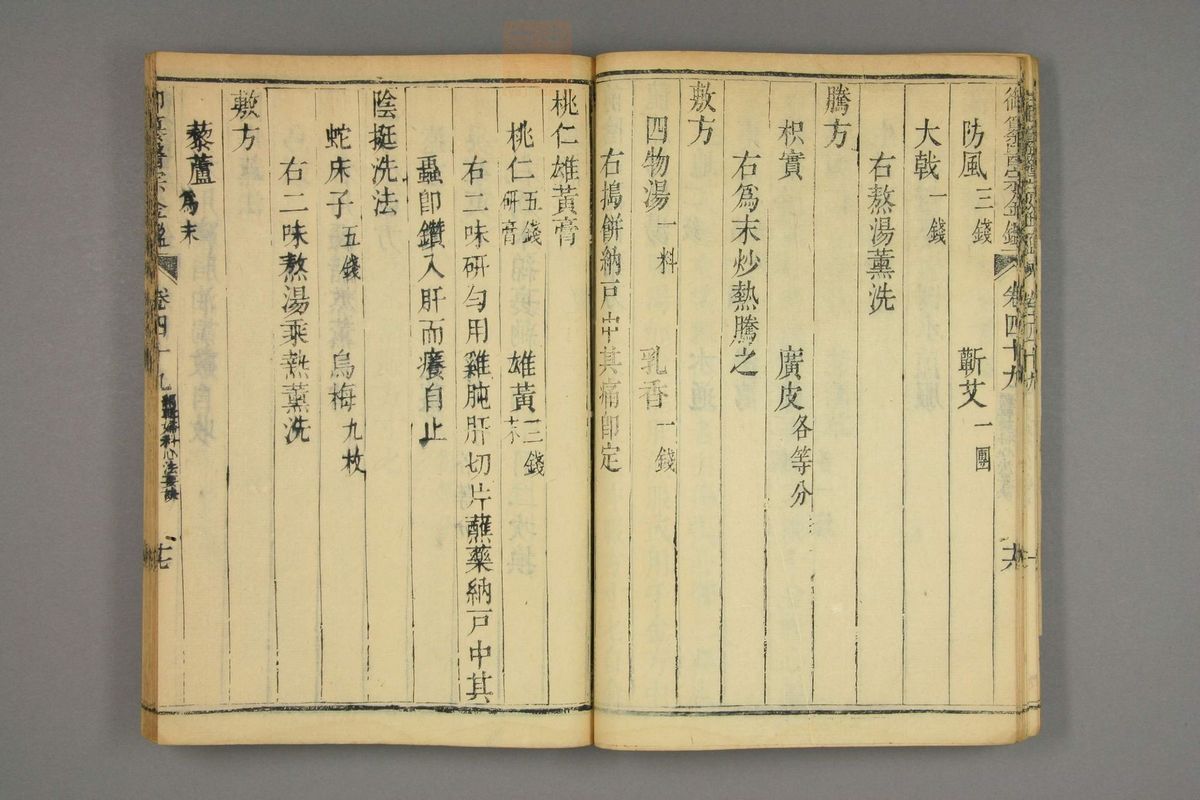 防風三錢 蘄艾一團
大戟一錢
右熬湯薰洗
騰方
枳實 廣皮各等分
右爲末炒熱騰之
敷方
四物湯一料 乳香一錢
右搗餅納戸中其痛即定
桃仁雄黃膏
桃仁五錢研膏 雄黃三錢末
右二味研勻用雞肫肝切片蘸藥納戸中其
蟲即鑽入肝而癢自止
陰挺洗法
蛇床子五錢 烏梅九枚
右二味熬湯乘熱薰洗
敷方
藜蘆爲末
御纂醫宗金鑑 卷四十九 婦科心法要訣